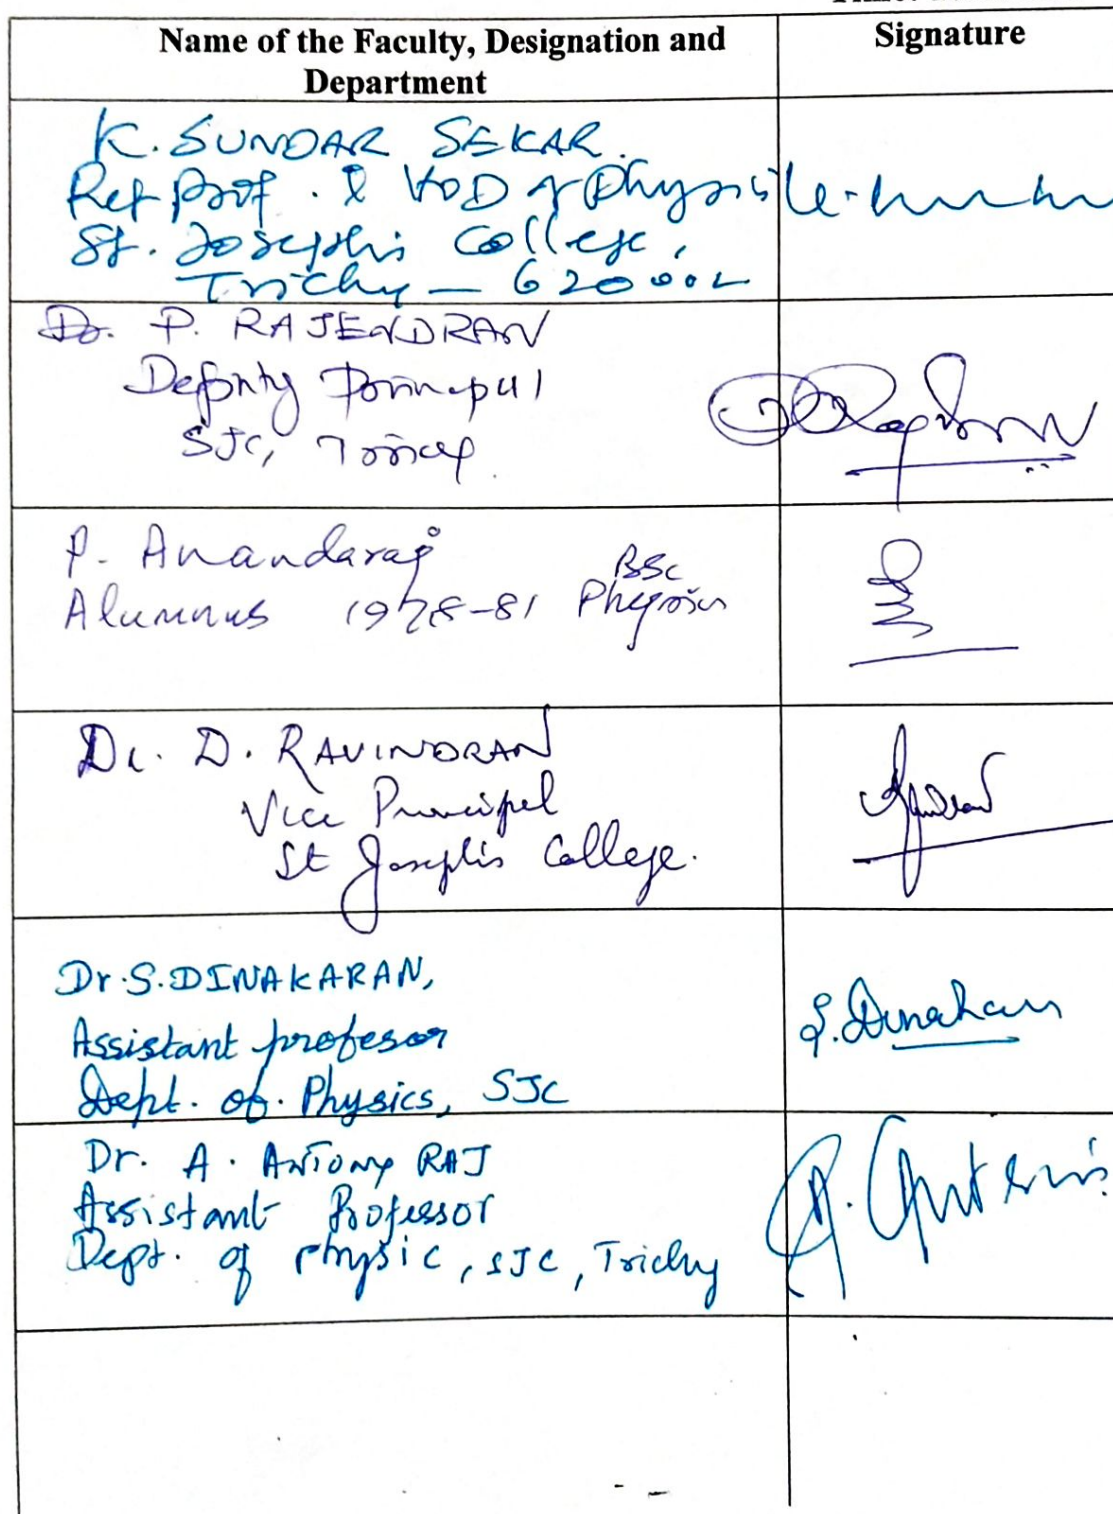 Name of the Faculty, Designation and
Department
Signature
K. SUNDAR SEKAR.
Ret Prof. & HOD of Physics
St. Joseph's College,
Trichy – 620002
Dr. P. RAJENDRAN
Deputy Principal
SJC, Trichy.
P. Anandaraj
Alumnus 1978-81 BSc
Physics
Dr. D. RAVINDRAN
Vice Principal
St Joseph's College.
Dr. S. DINAKARAN,
Assistant profesor
Dept. of. Physics, SJC
S. Dinakaran
Dr. A. ANTONY RAJ
Assistant Professor
Dept. of physic, SJC, Trichy